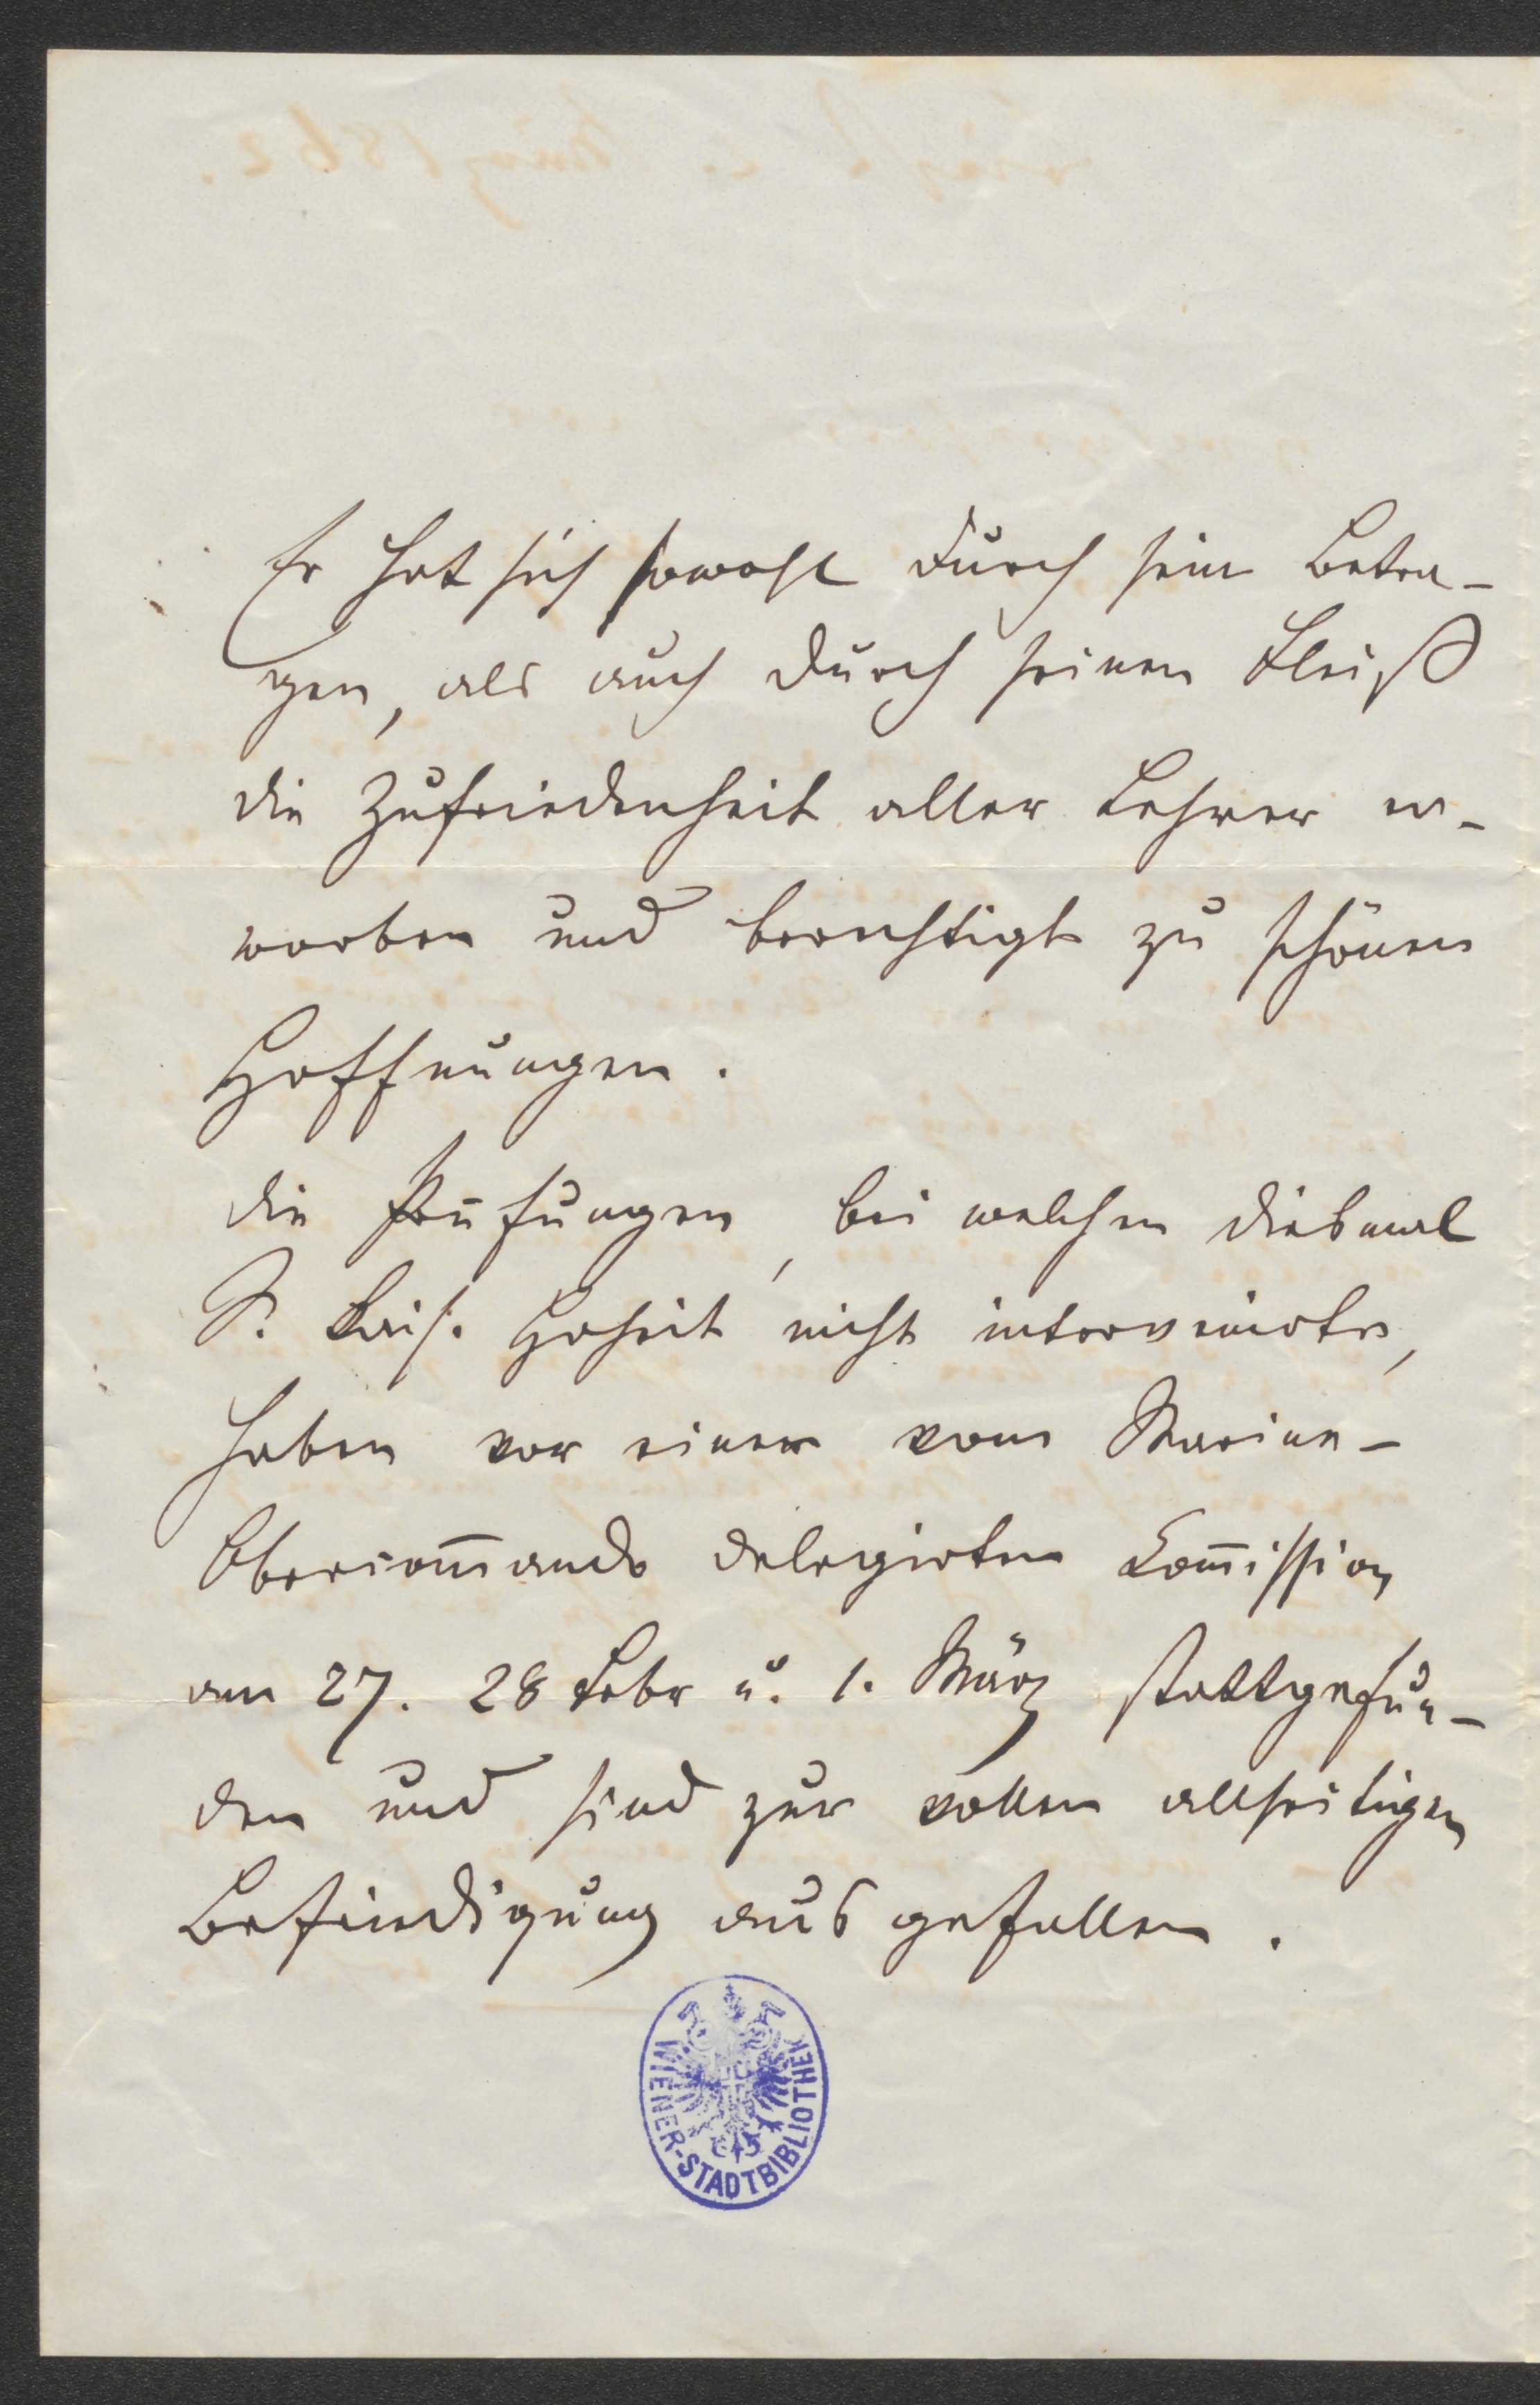 Er hat sich sowohl durch sein Betra-
gen, als auch durch seinen Fleiß
die Zufriedenheit aller Lehrer er-
worben und berechtigt zu schönen
Hoffnungen.
Die Prüfungen, bei welchen diesmal
S. Kais. Hoheit nicht intervenirte,
haben vor einer vom Marine-
Obercom̅ando delegirten Com̅ission
am 27. 28 Febr u. 1. März stattgefun-
den und sind zur vollen allseitigen
Befriedigung ausgefallen.
WIENER-STADTBIBLIOTHEK